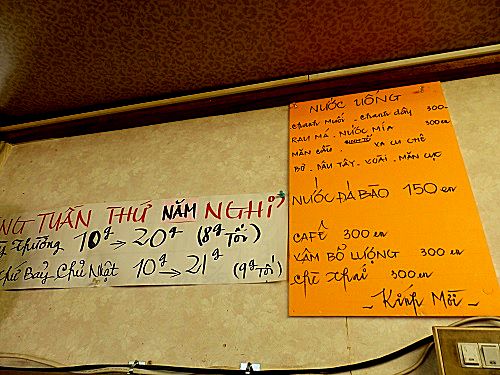 NG TUẦN THỨ NĂM NGHỈ
Thường 10g → 20g (8g Tối)
Thứ Bảy - Chủ Nhật 10g → 21g (9g Tối)
NƯỚC UỐNG
Chanh Muối - Chanh dây 300en
RAU MÁ - NƯỚC MÍA 300en
MÃN CẦU - SINH TỐ XA CU CHÊ
BƠ - DÂU TÂY - XOÀI - MÃN CỤC
NƯỚC ĐÁ BÀO 150 en
CAFÊ 300 en
XÂM BỔ LƯỢNG 300 en
Chè Thái 300en
- Kính Mời -